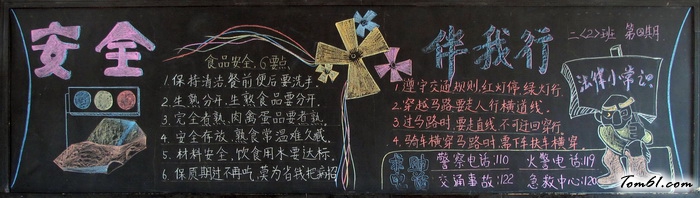 安全
伴我行
二〈2〉班 第②期
食品安全,6要点
1.保持清洁,餐前便后要洗手.
2.生熟分开,生熟食品要分开.
3.完全煮熟,肉禽蛋品要煮熟.
4.安全存放,熟食常温难久藏.
5.材料安全,饮食用水要达标.
6.保质期过不再吃,莫为省钱把病招
1.遵守交通规则,红灯停,绿灯行.
2.穿越马路要走人行横道线.
3.过马路时要走直线不可迂回穿行.
4.骑车横穿马路时,需下车扶车横穿
求助电话
警察电话:110
火警电话:119
交通事故:122
急救中心:120
法律小常识
Tom61.com